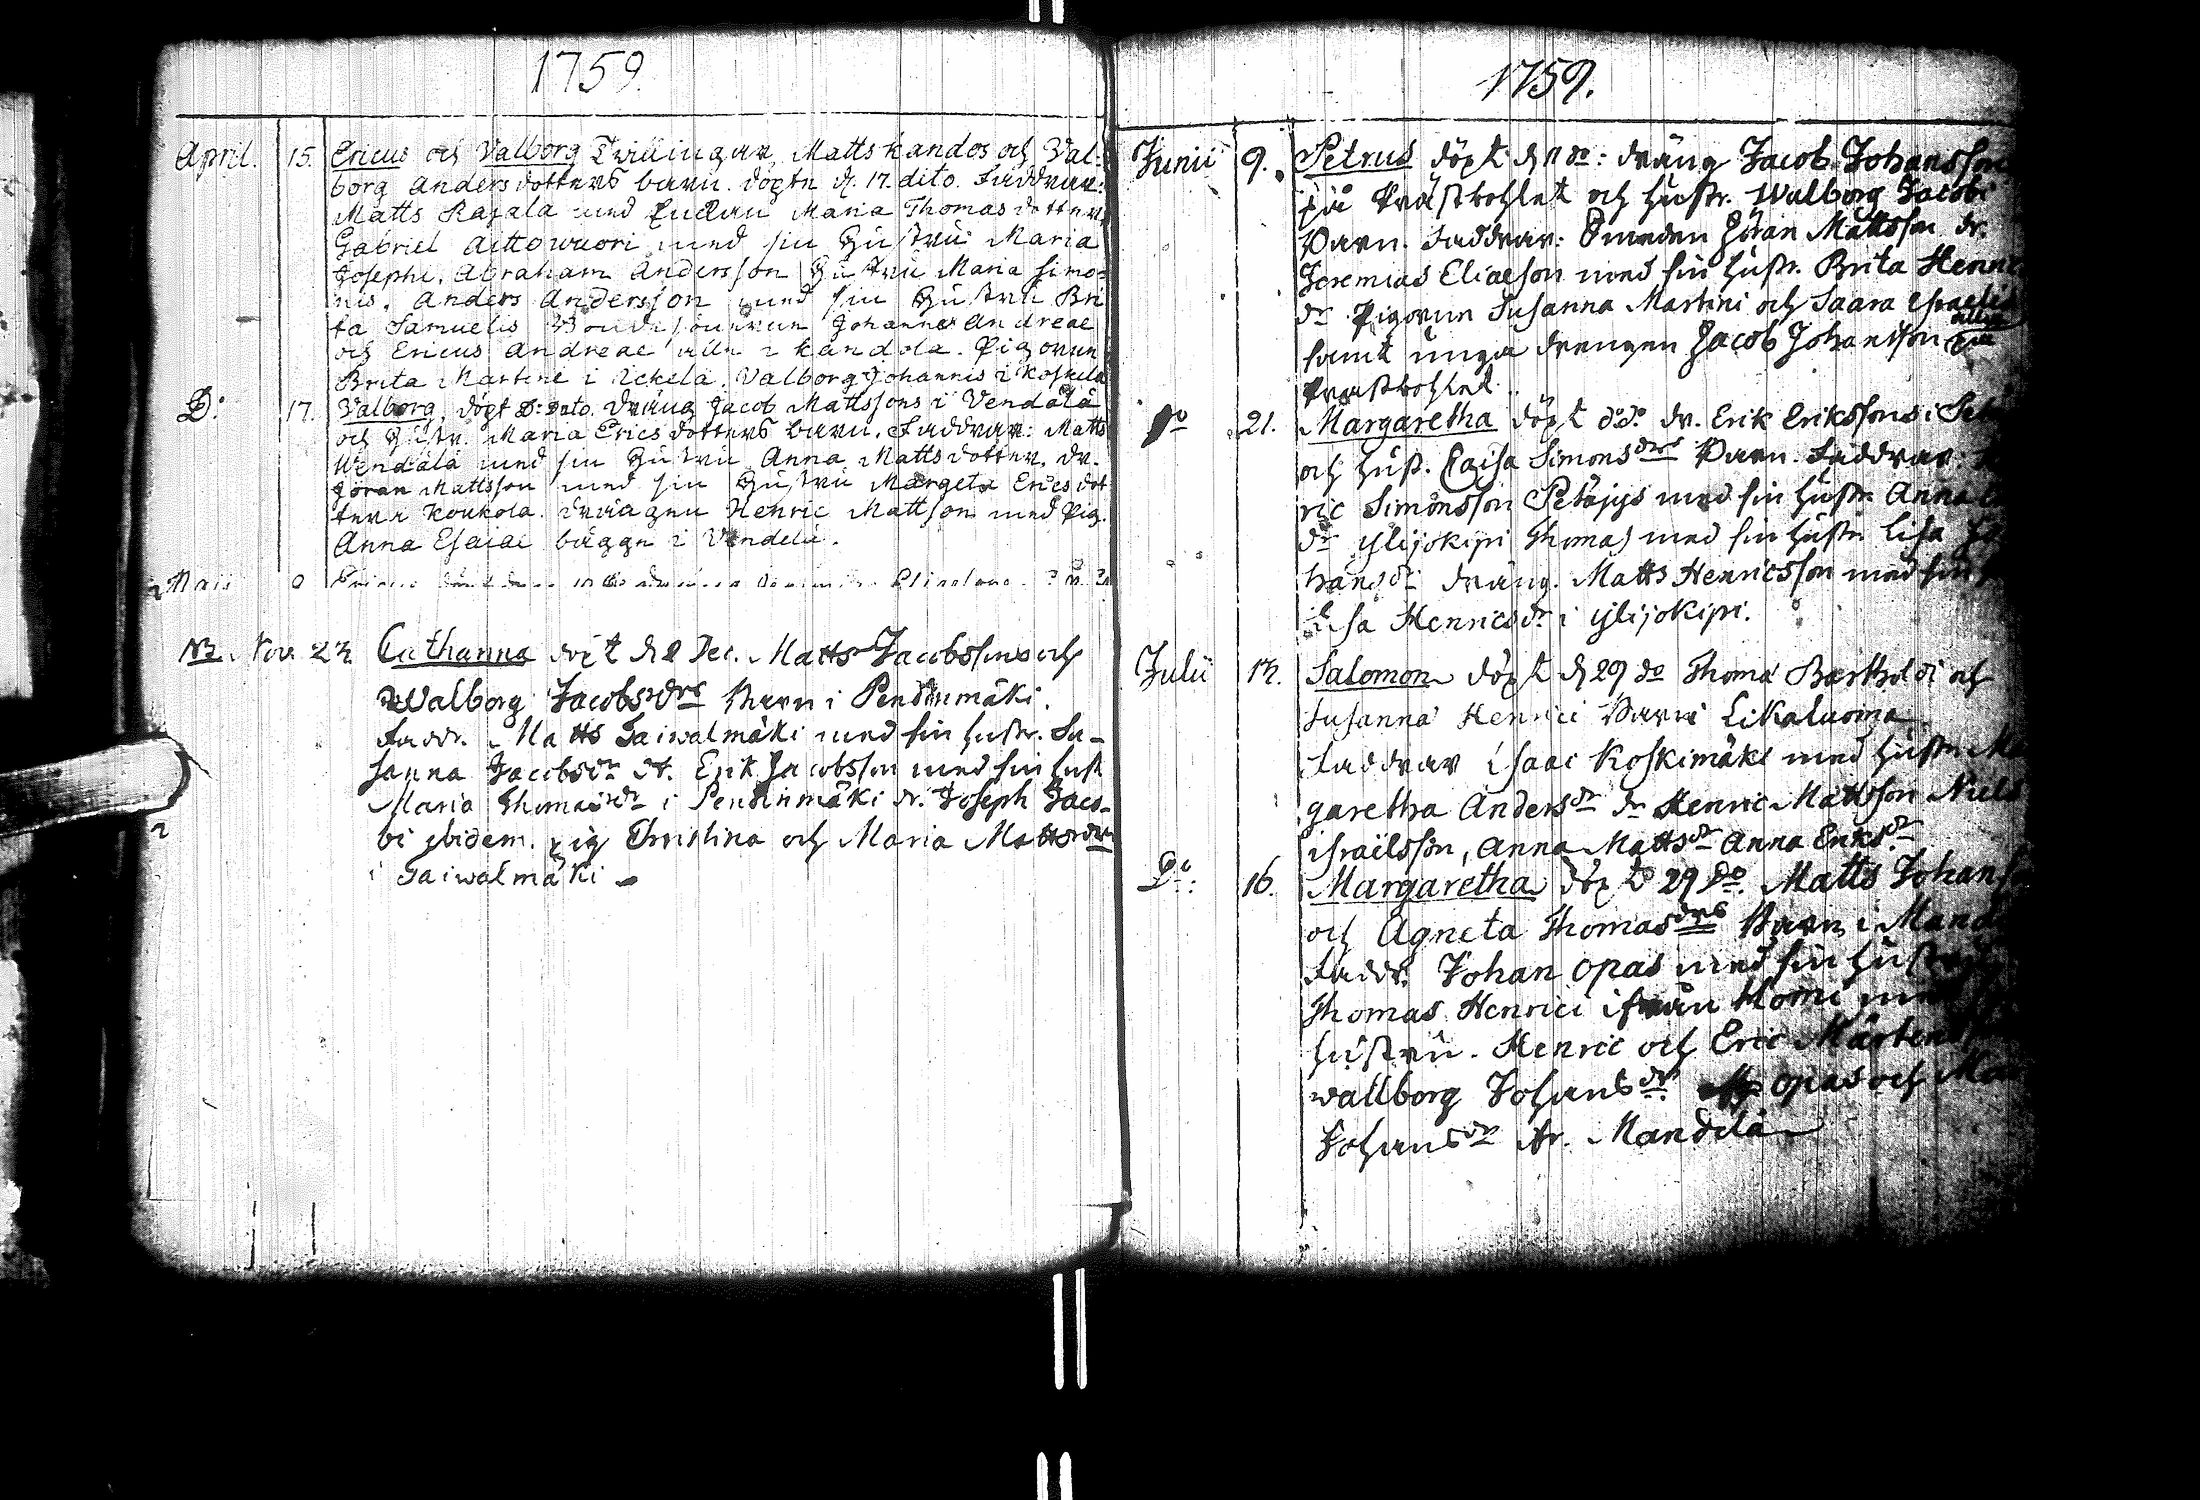 1759.
April. 15. Ericus och Valborg Twillingar, Matts kandos och Val-
borg Andersdotters barn. döpte d. 17. dito. Faddrar:
Matts Rajala med Enckan Maria Thomasdotter,
Gabriel Aittowuori med sin Hustru Maria
Josephi. Abraham Andersson Hustru Maria Simo-
nis. Anders Andersson med sin Hustru Bri
ta Samuelis Bondesönerne Johannes Andreae
och Ericus Andreae alla i kandola. Pigorne
Brita Martini i Ickelä. Valborg Johannis i Koskela
D: 17. Valborg, döpt d: dito. dräng Jacob Mattssons i Vendälä
och Hustr. Maria Ericsdotters barn. Faddrar: Matts
Wendälä med sin Hustru Anna Mattsdotter. dr.
Jöran Mattsson med sin Hustru Margeta Ericsdot
ter i Koukola. drängen Henric Mattson med Pig.
Anna Esaiae bägge i Vendelä.
Maii
NB. Nov. 23. Catharina döpt d 2 Dec. Matts Jacobssons och
Walborg Jacobsdrs Barn i Penttinmäki.
Faddr. Matts Taiwalmäki med sin hustr. Su-
sanna Jacobsdr dr. Erik Jacobsson med sin hust
Maria Thomasdr i Penttinmäki dr. Joseph Jaco-
bi ibidem. pig Christina och Maria Mattsdr
i Taiwalmäki
1759.
Junii 9. Petrus döpt d 11 do: dräng Jacob Johansson
på Prästbohlet och hustr. Walborg Jacobi
Barn. Faddrar: Smeden Jöran Mattsson dr.
Jeremias Eliaeson med sin hustr. Brita Henric
dr Pigorne Susanna Martini och Saara Israelis
samt unga drengen Jacob Johansson på
Prästbohlet.
Do 21. Margaretha döpt do do. dr. Erik Erikssons i
och hust. Caisa Simonsdrs Barn. Faddrar:
ric Simonsson Petäjys med sin hustr. Anna
dr ylijokipi Thomas med sin hustr. Lisa Jo
hansdr dräng. Matts Henricsson med sin
Lisa Henricsdr i ylijokipi.
Julii 13. Salomon döpt d 29 do Thoma Bartholdi och
Susanna Henrici Barn i Likaluoma.
Faddrar Isaac Koskimäki med hustr Mar
garetha Andersdr dr Henric Mattsson Niels
israilsson, Anna Mattsdr Anna Eriksdr
Do: 16. Margaretha döpt d 29 do. Matts Johans
och Agneta Thomasdrs Barn i Mand
Faddr. Johan Opas med sin hustru
Thomas Henrici ifrån Homi med
hustru. Henric och Eric Mårtens
wallborg Johansdr opas och
Johansdr fr. Mandelä